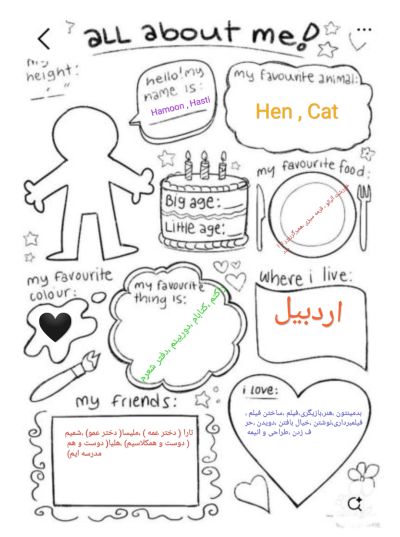 all about me!
my height:
hello! my name is:
Hamoon , Hasti
my favourite animal:
Hen , Cat
Big age:
Little age:
my favourite food:
my favourite colour:
my favourite thing is:
کتابام، دوربینم ،دفتر شعرم
Where i live:
اردبیل
my friends:
تارا ( دختر عمه ) ،ملیسا( دختر عمو) ،شمیم
( دوست و همکلاسیم) ،هلیا( دوست و هم
مدرسه ایم)
i love:
بدمینتون ،هنر،بازیگری،فیلم ،ساختن فیلم ،
فیلمبرداری،نوشتن ،خیال بافتن ،دویدن ،حر
ف زدن ،طراحی و انیمه